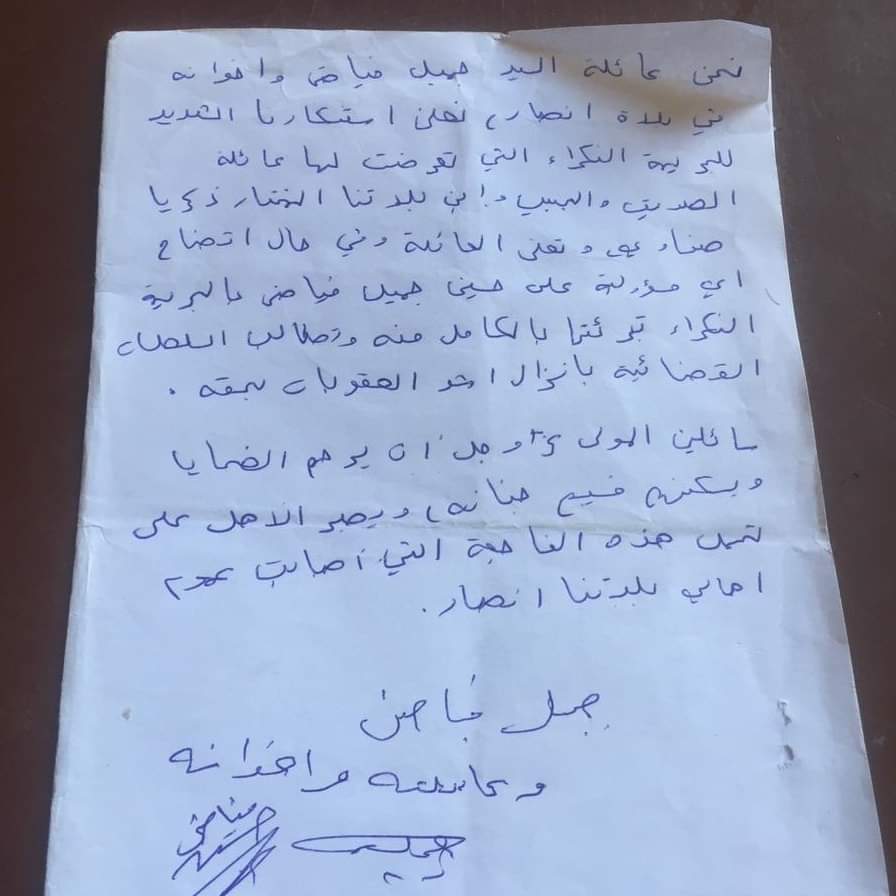 نحن عائلة السيد جميل فياض واخوانه
في بلدة انصار، نعلن استنكارنا الشديد
للجريمة النكراء التي تعرضت لها عائلة
الصديق والحبيب وابن بلدتنا المختار زكريا
صفاوي وتعلن العائلة وفي حال اتضاح
اي مسؤولية على حسين جميل فياض بالجريمة
النكراء تبرئتها بالكامل منه وتطالب السلطات
القضائية بانزال اشد العقوبات بحقه.
سائلين المولى عز وجل ان يرحم الضحايا
ويسكنهم فسيح جنانه، ويصبر الاهل على
تحمل هذه الفاجعة التي أصابت عموم
اهالي بلدتنا انصار.
جميل فياض
وعائلته واخوانه
فياض